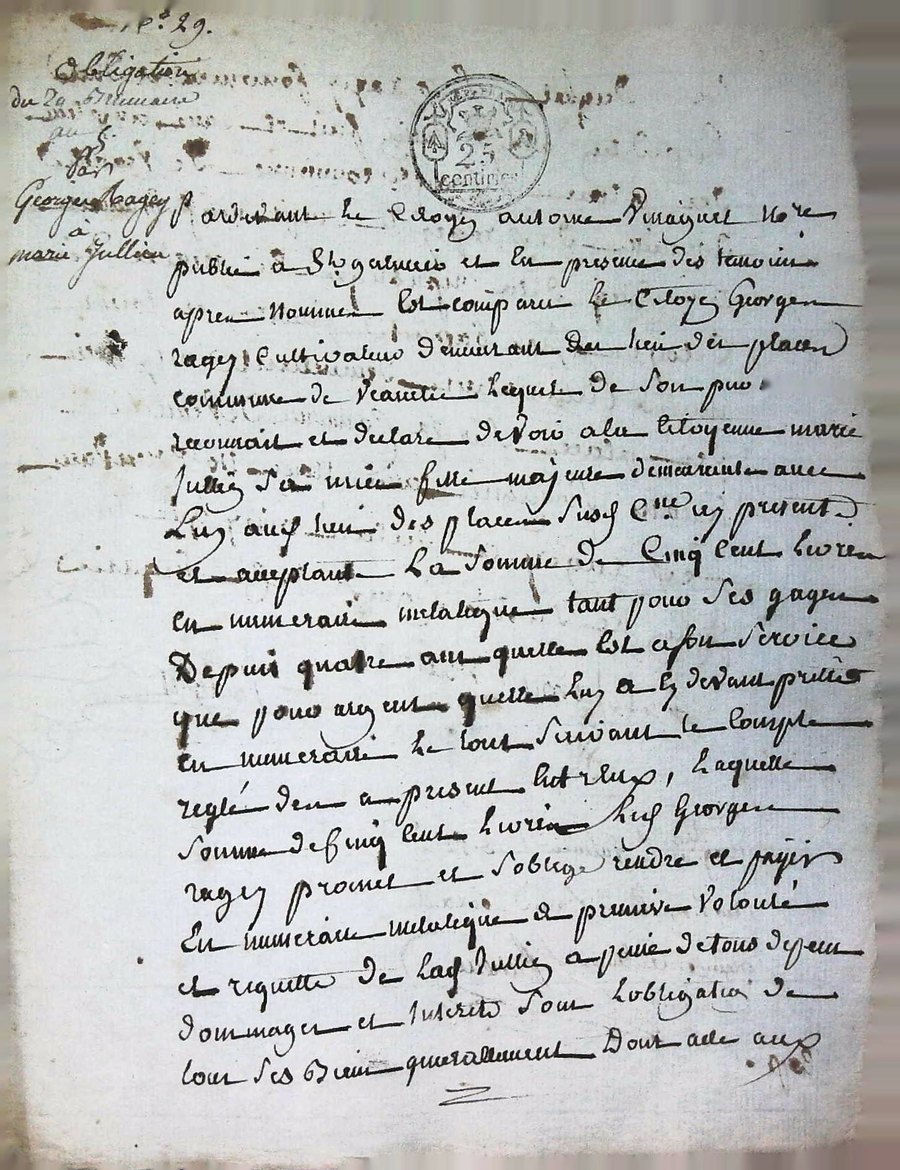 n.° 29.
Obligation
du 29 Brumaire
an 5
Par
Georges Ragey
a
marie Jullien
25
centimes
Pardevant Le Citoyen antoine Nore
public a St et En presence des temoins
apres nommes Est comparu Le Citoyen Georges
ragey Cultivateur demeurant au lieu des places
commune de Lequel de Son gré
reconnait et declare devoir a la Citoyenne marie
Jullien Sa niece fille majeure demeurante avec
Luy aud lieu des places Susd Cne icy presente
et acceptante La Somme de Cinq Cent Livres
En numeraire metalique tant pour Ses gages
Depuis quatre ans quelle Est a son Service
que pour argent quelle Luy a cy devant prette
En numeraire Le tout Suivant le Compte
reglé des a present Entreux, Laquelle
Somme de Cinq Cent Livres Led Georges
ragey promet et Soblige rendre et payer
En numeraire metalique a premiere Volonté
et requette de Lad Jullien a peine de tous depens
dommages et Interets Sous Lobligation de
tous Ses Biens generallement Dont acte aux